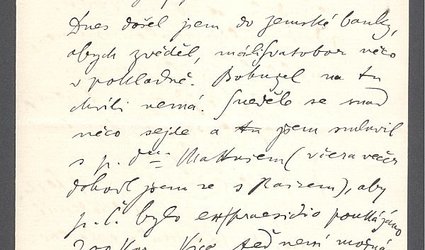 Dnes došel jem do zemské banky,
abych zvěděl, má-li Svatobor něco
v pokladně. Bohužel na tu
chvíli nemá. Snad se
něco sejde a tu jsem mluvil
s p. drem Mattušem (včera večer
jsem se s), aby
p. Č bylo ex praesidio poukázáno
Více teď není možná